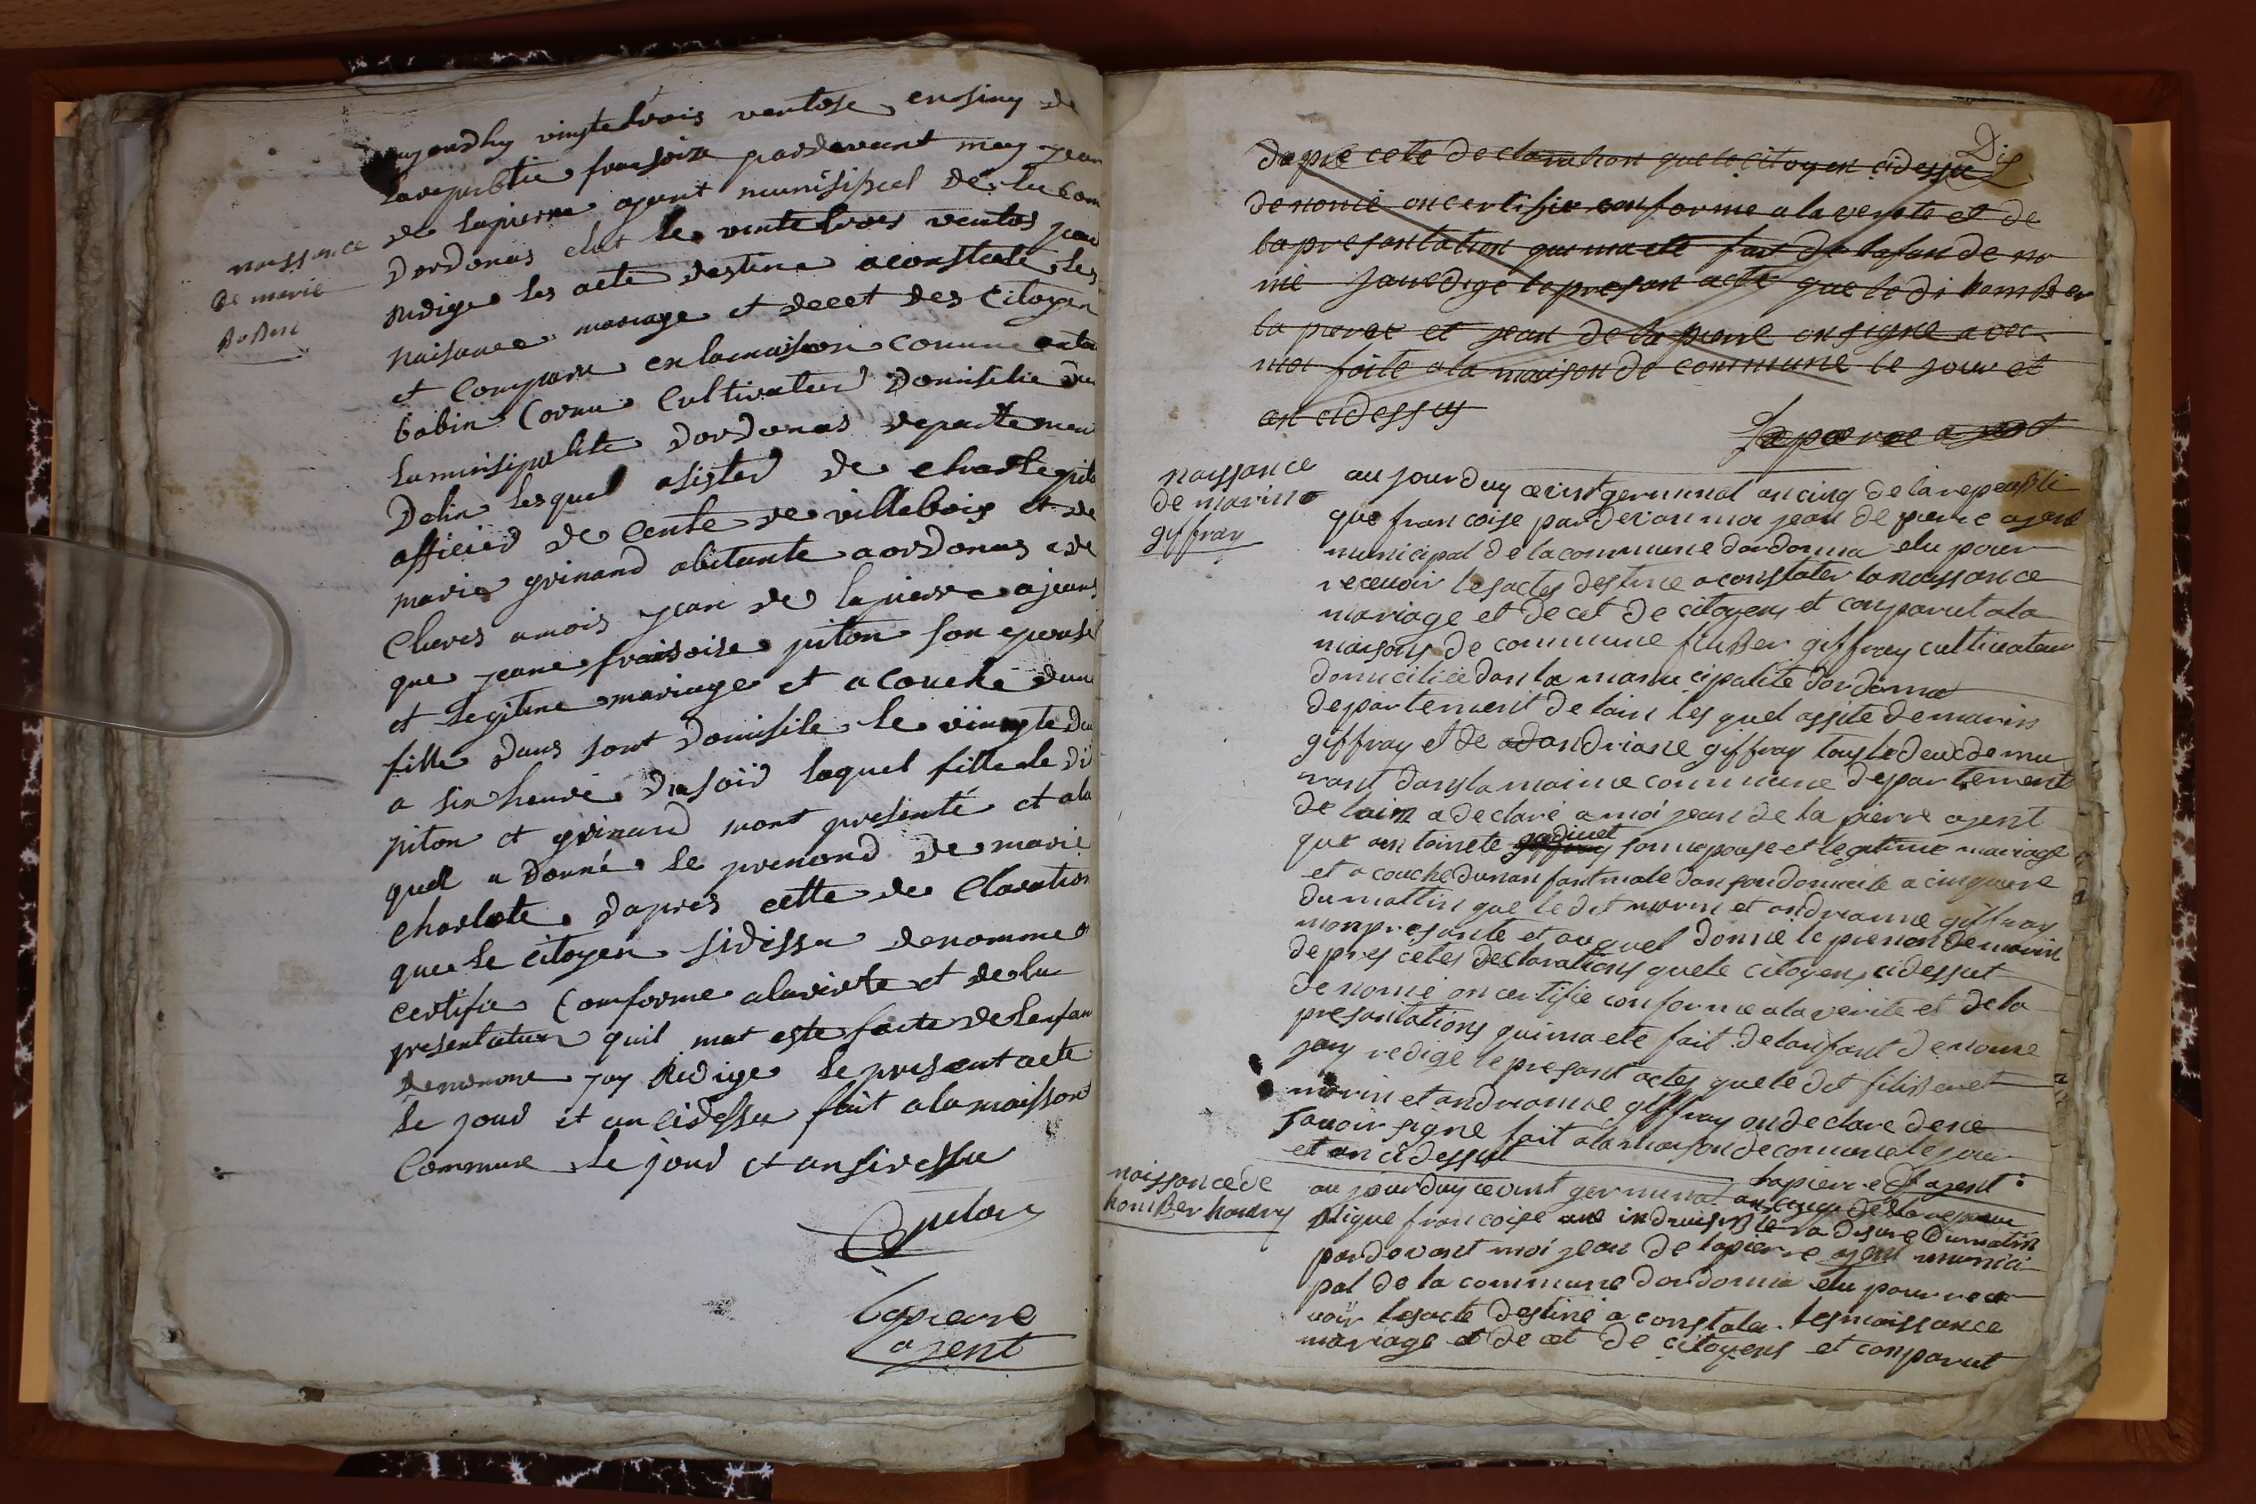 naissance
de marie
Bobin
aujourdhuy vingtetrois ventose ensinq de
larepublie fransoize pardevant moy jean
de lapierre ajant munisipal de la com
dordonas elut le vintetrois ventos pour
redige les acte destine aconstate les
naisance mariage et decet des Citoyen
et Comparu en lamaison comune
bobin Cornu Cultivateur domisilie dan
lamunisipalite dordonas departemen
Delin lesquel asister de charle pito
afficier de cente de villebois et de
marie grinand abitante aordonas a de
Clares amois jean de lapierre ajeant
que jeane fraisoise piton son epouse
et legitime mariage et acouché dune
fille dans sont domisile le viingte deu
a sin heure du soir laquel fille le di
piton et grinand mont presinté et ala
quel a donné le prenond de marie
charlote dapres cette de Claration
que le citoyen sidissu denomme
certifie Comforme alavirite et de la
presentation quil mat este faite de lenfan
denomme jay Redige le present acte
le jour et an cidessu fait ala maisson
Commune le jour et an sidessu
piton
lapierre
agent
Dix
dapre cete declaration que le citoyen cidessu
denomé on certifie conforme a la verite et de
la presantation qui ma ete fait de lafan de no
mé jai redige le presan acte que le di homber
la pierre et jean de la pierre on signe avec
moi faite a la maison de commune le jour et
an cidessus
Lapierre agent
naissance
de marin
giffray
au jourduy ce vint germinal an cinq de la republi
que francoise par devan moi jean de pierre agent
municipal de la commune dordonna elu pour
recevoir les actes destine a constater la naissance
mariage et decet de citoyens et comparut a la
maisons de commune filiber giffray cultivateur
domiciliée dan la municipalite dordonna
departement de lain les quel assite de marin
giffray et de andriane giffray tous le deux demu
rant dans la maime commune departement
de lain a declaré a moi jean de la pierre agent
que antoinete godinet son epouse et legitime mariage
et acouche dun anfant male dan son domicile a cinq ure
du mattin que ledit marin et andrianne giffray
mon presante et auquel donne le prenon de marin
depres cetes declarations quele citoyens cidessut
denomé on certifie conforme a la verite et de la
presantations qui ma ete fait de lanfant denomé
jay redige le presant actes que le dit filiber et
marin et andrianne giffray on declare de ne
savoir signe fait a la maison de comune le jour
et an cidessut
Lapierre agent
naissance de
homber houdry
au jourduy ce vint germinal an cinq de la repeu
blique francoise du matin
pardevant moi jean de lapierre agent munici
pal de la commune dordonna elu pour rece
voir lesacte destiné a constater les naissance
mariage et decet de citoyens et comparut